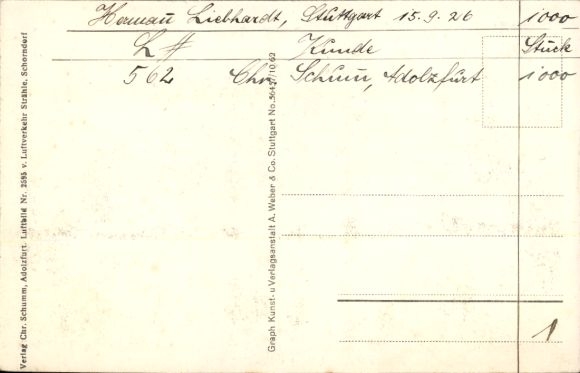 Hermann Liebhardt, Stuttgart 15.9.26 1000
L # Kunde Stück
562 Chr. Schumm, Adolzfurt 1000
Verlag Chr. Schumm, Adolzfurt. Luftbild Nr. 2595 v. Luftverkehr Strähle, Schorndorf
Graph Kunst- u Verlagsanstalt A. Weber & Co. Stuttgart
1